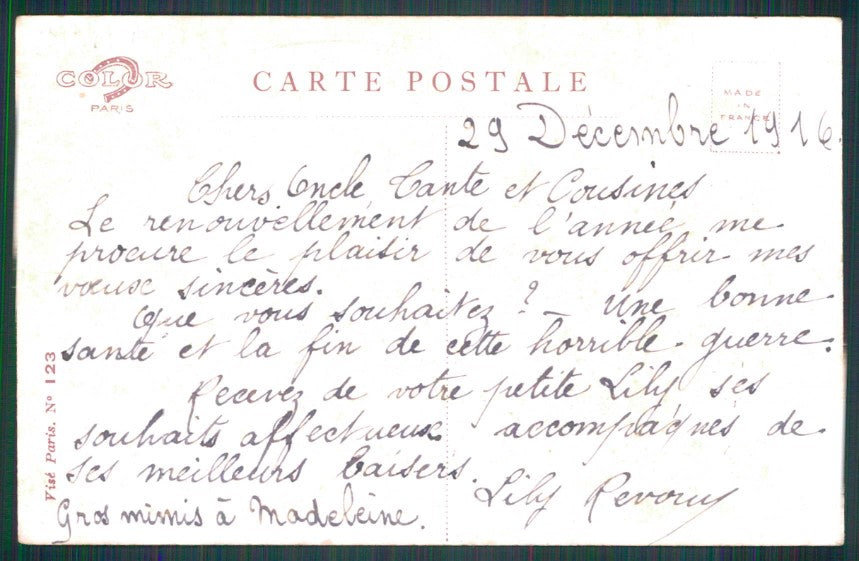 COLOR
PARIS
CARTE POSTALE
MADE
IN
FRANCE
29 Décembre 1916.
Chers Oncle Tante et Cousines
Le renouvellement de l'année me
procure le plaisir de vous offrir mes
vœux sincères.
Que vous souhaitez ? – Une bonne
santé et la fin de cette horrible guerre.
Recevez de votre petite Lily ses
souhaits affectueux accompagnés de
ses meilleurs baisers.
Lily
Gros mimis à Madeleine.
Visé Paris. N° 123